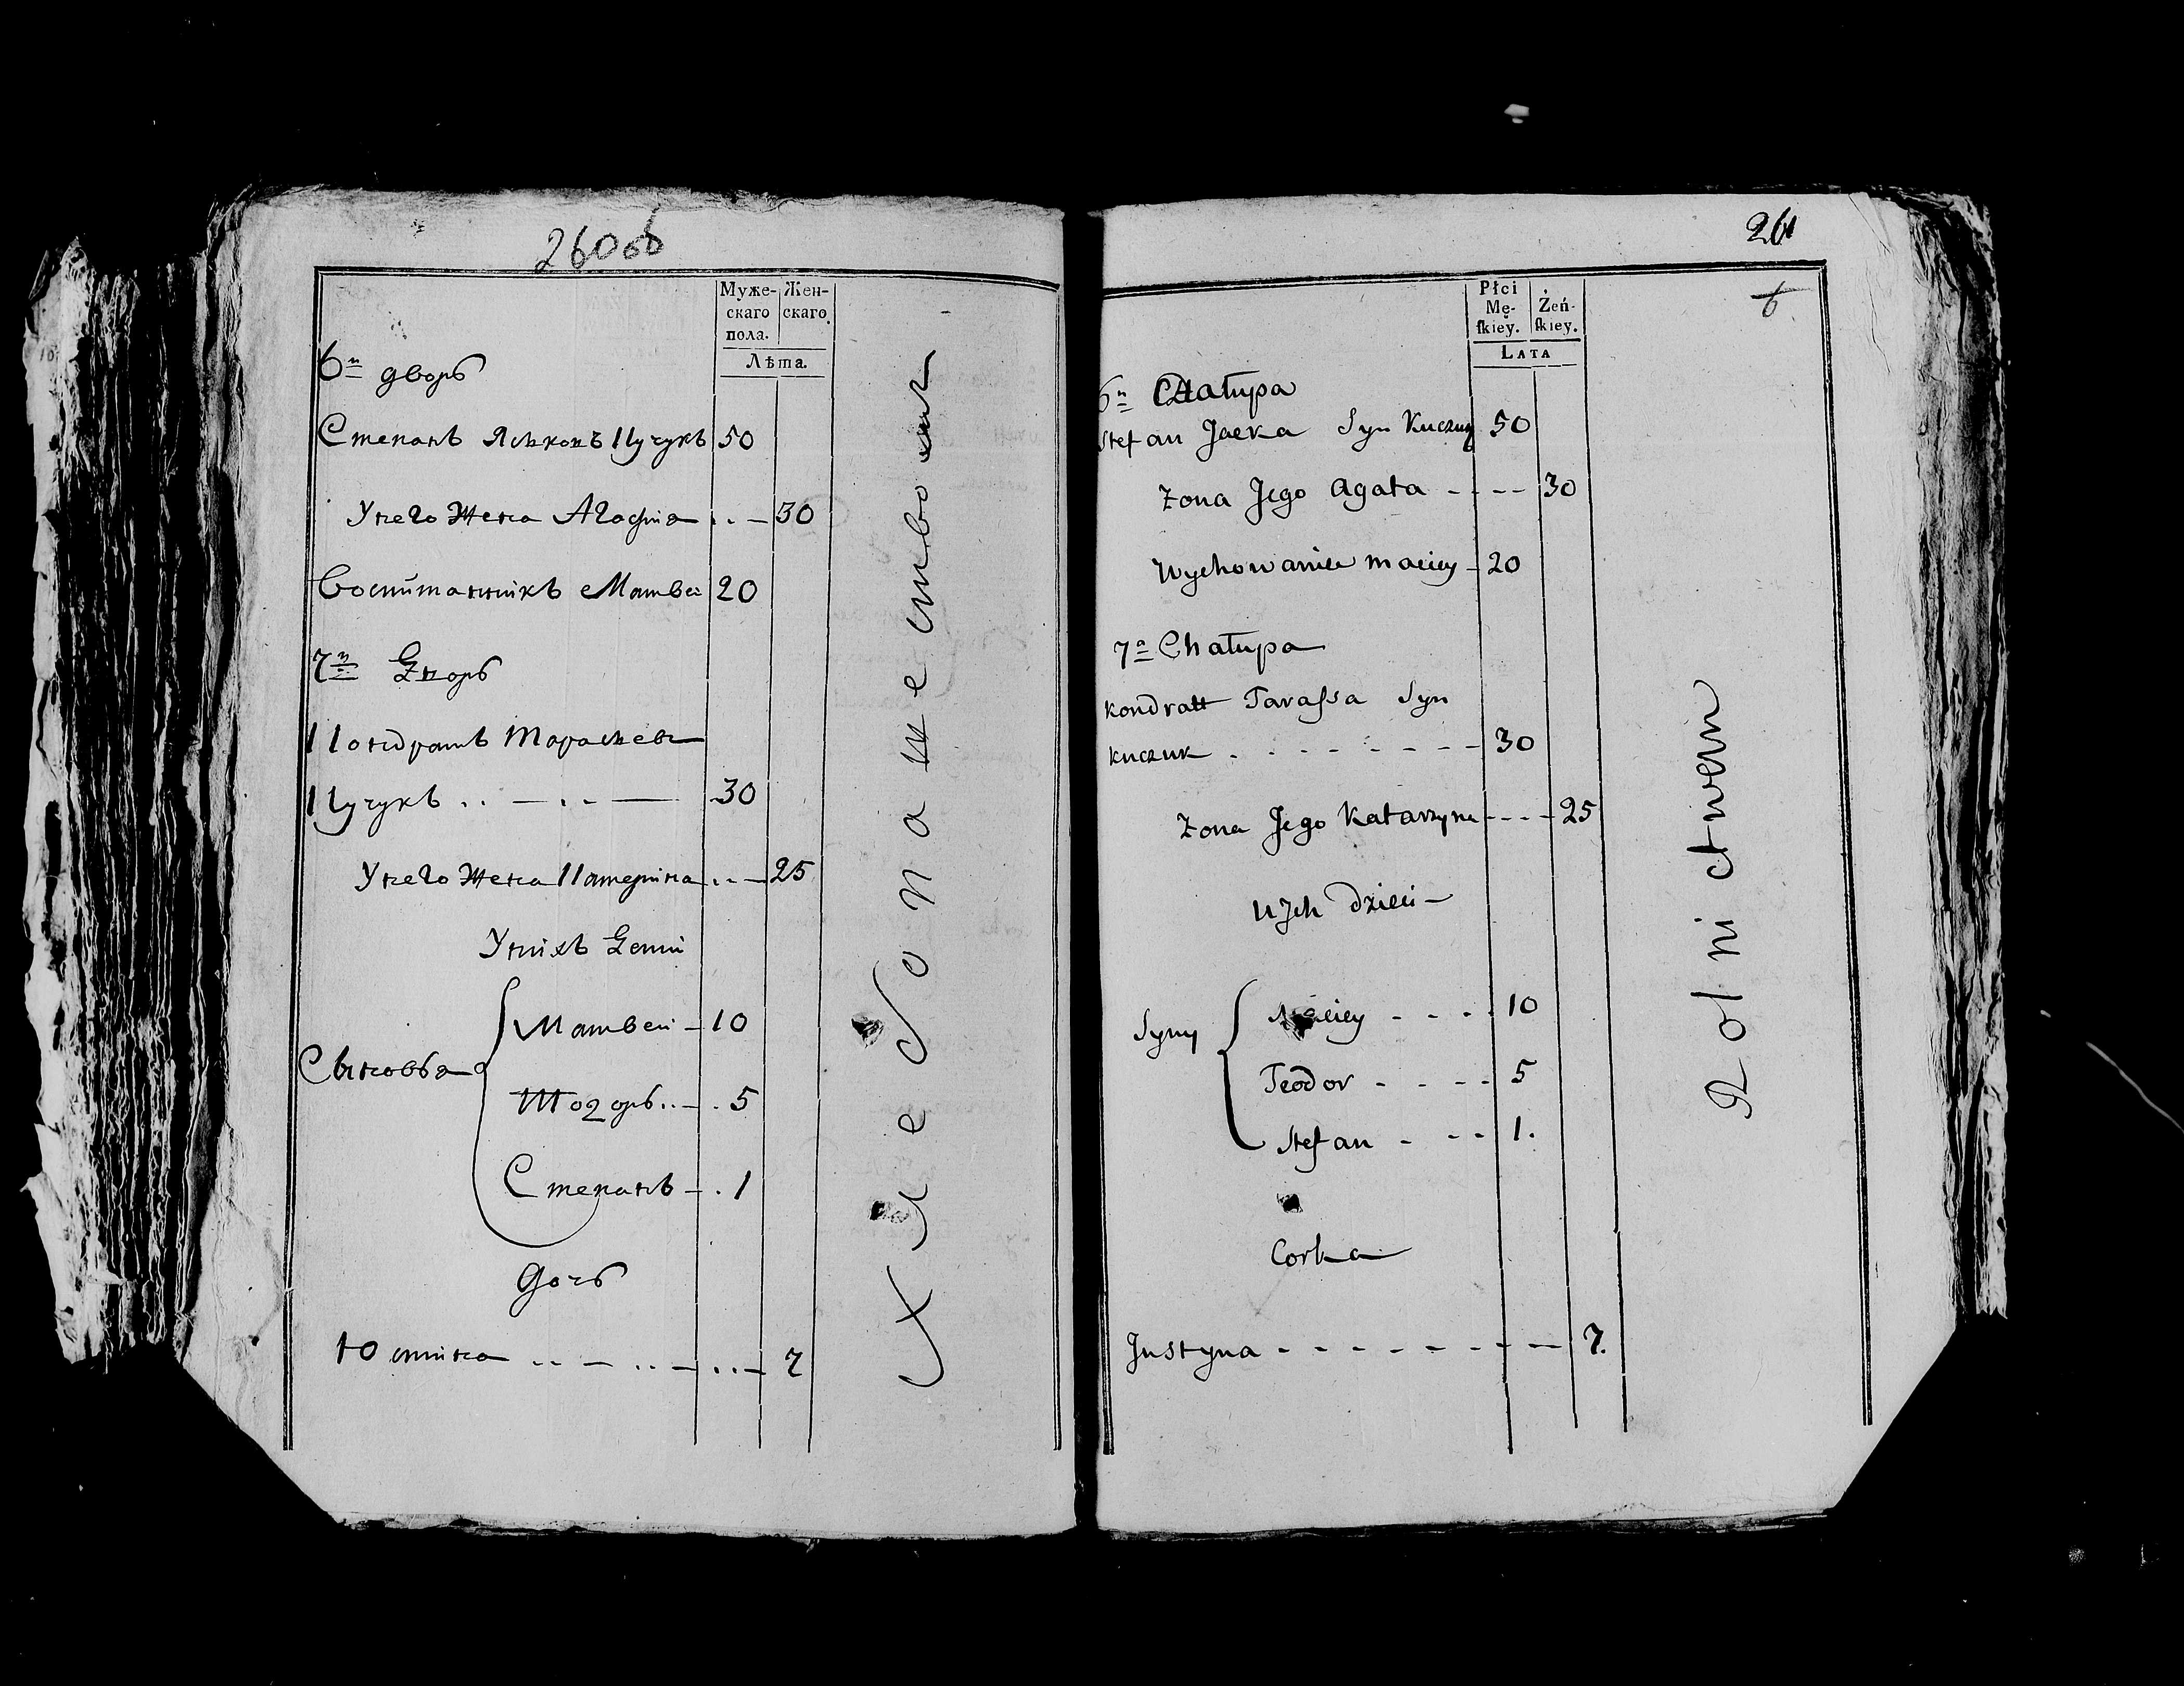 260об
Муже-
скаго
пола.
Жен-
скаго.
Лѣта.
6й дворъ
Степанъ Яськовъ Кучукъ 50
Унего жена Агафия .. — 30
Воспитанникъ Матвей 20
7й Дворъ
Кондратъ Тарасьевъ
Кучукъ .. — .. — 30
Унего жена Катерина .. — 25
Унихъ Дети
Сыновья
Матвей — 10
Тодоръ .. — . 5
Степанъ — . 1
Дочь
Юстина .. — .. — .. — 7
Хлебопашеством
261
6
Płci
Mę-
ſkiey.
Żeń-
ſkiey.
Lata
6a Chałupa
Stefan Jacka Syn Kuczuk 50
Zona Jego Agata - - - - 30
Wychowaniec Maciey - 20
7a Chałupa
Kondratt Taraſsa Syn
Kuczuk . - - - - - - - 30
Zona Jego Katarzyna - - - - 25
U Jch Dzieci -
Syny
Maciey - - - . 10
Teodor - - - - 5
Stefan - - - 1.
Corka
Justyna - - - - - - - - - 7.
Rolnictwem